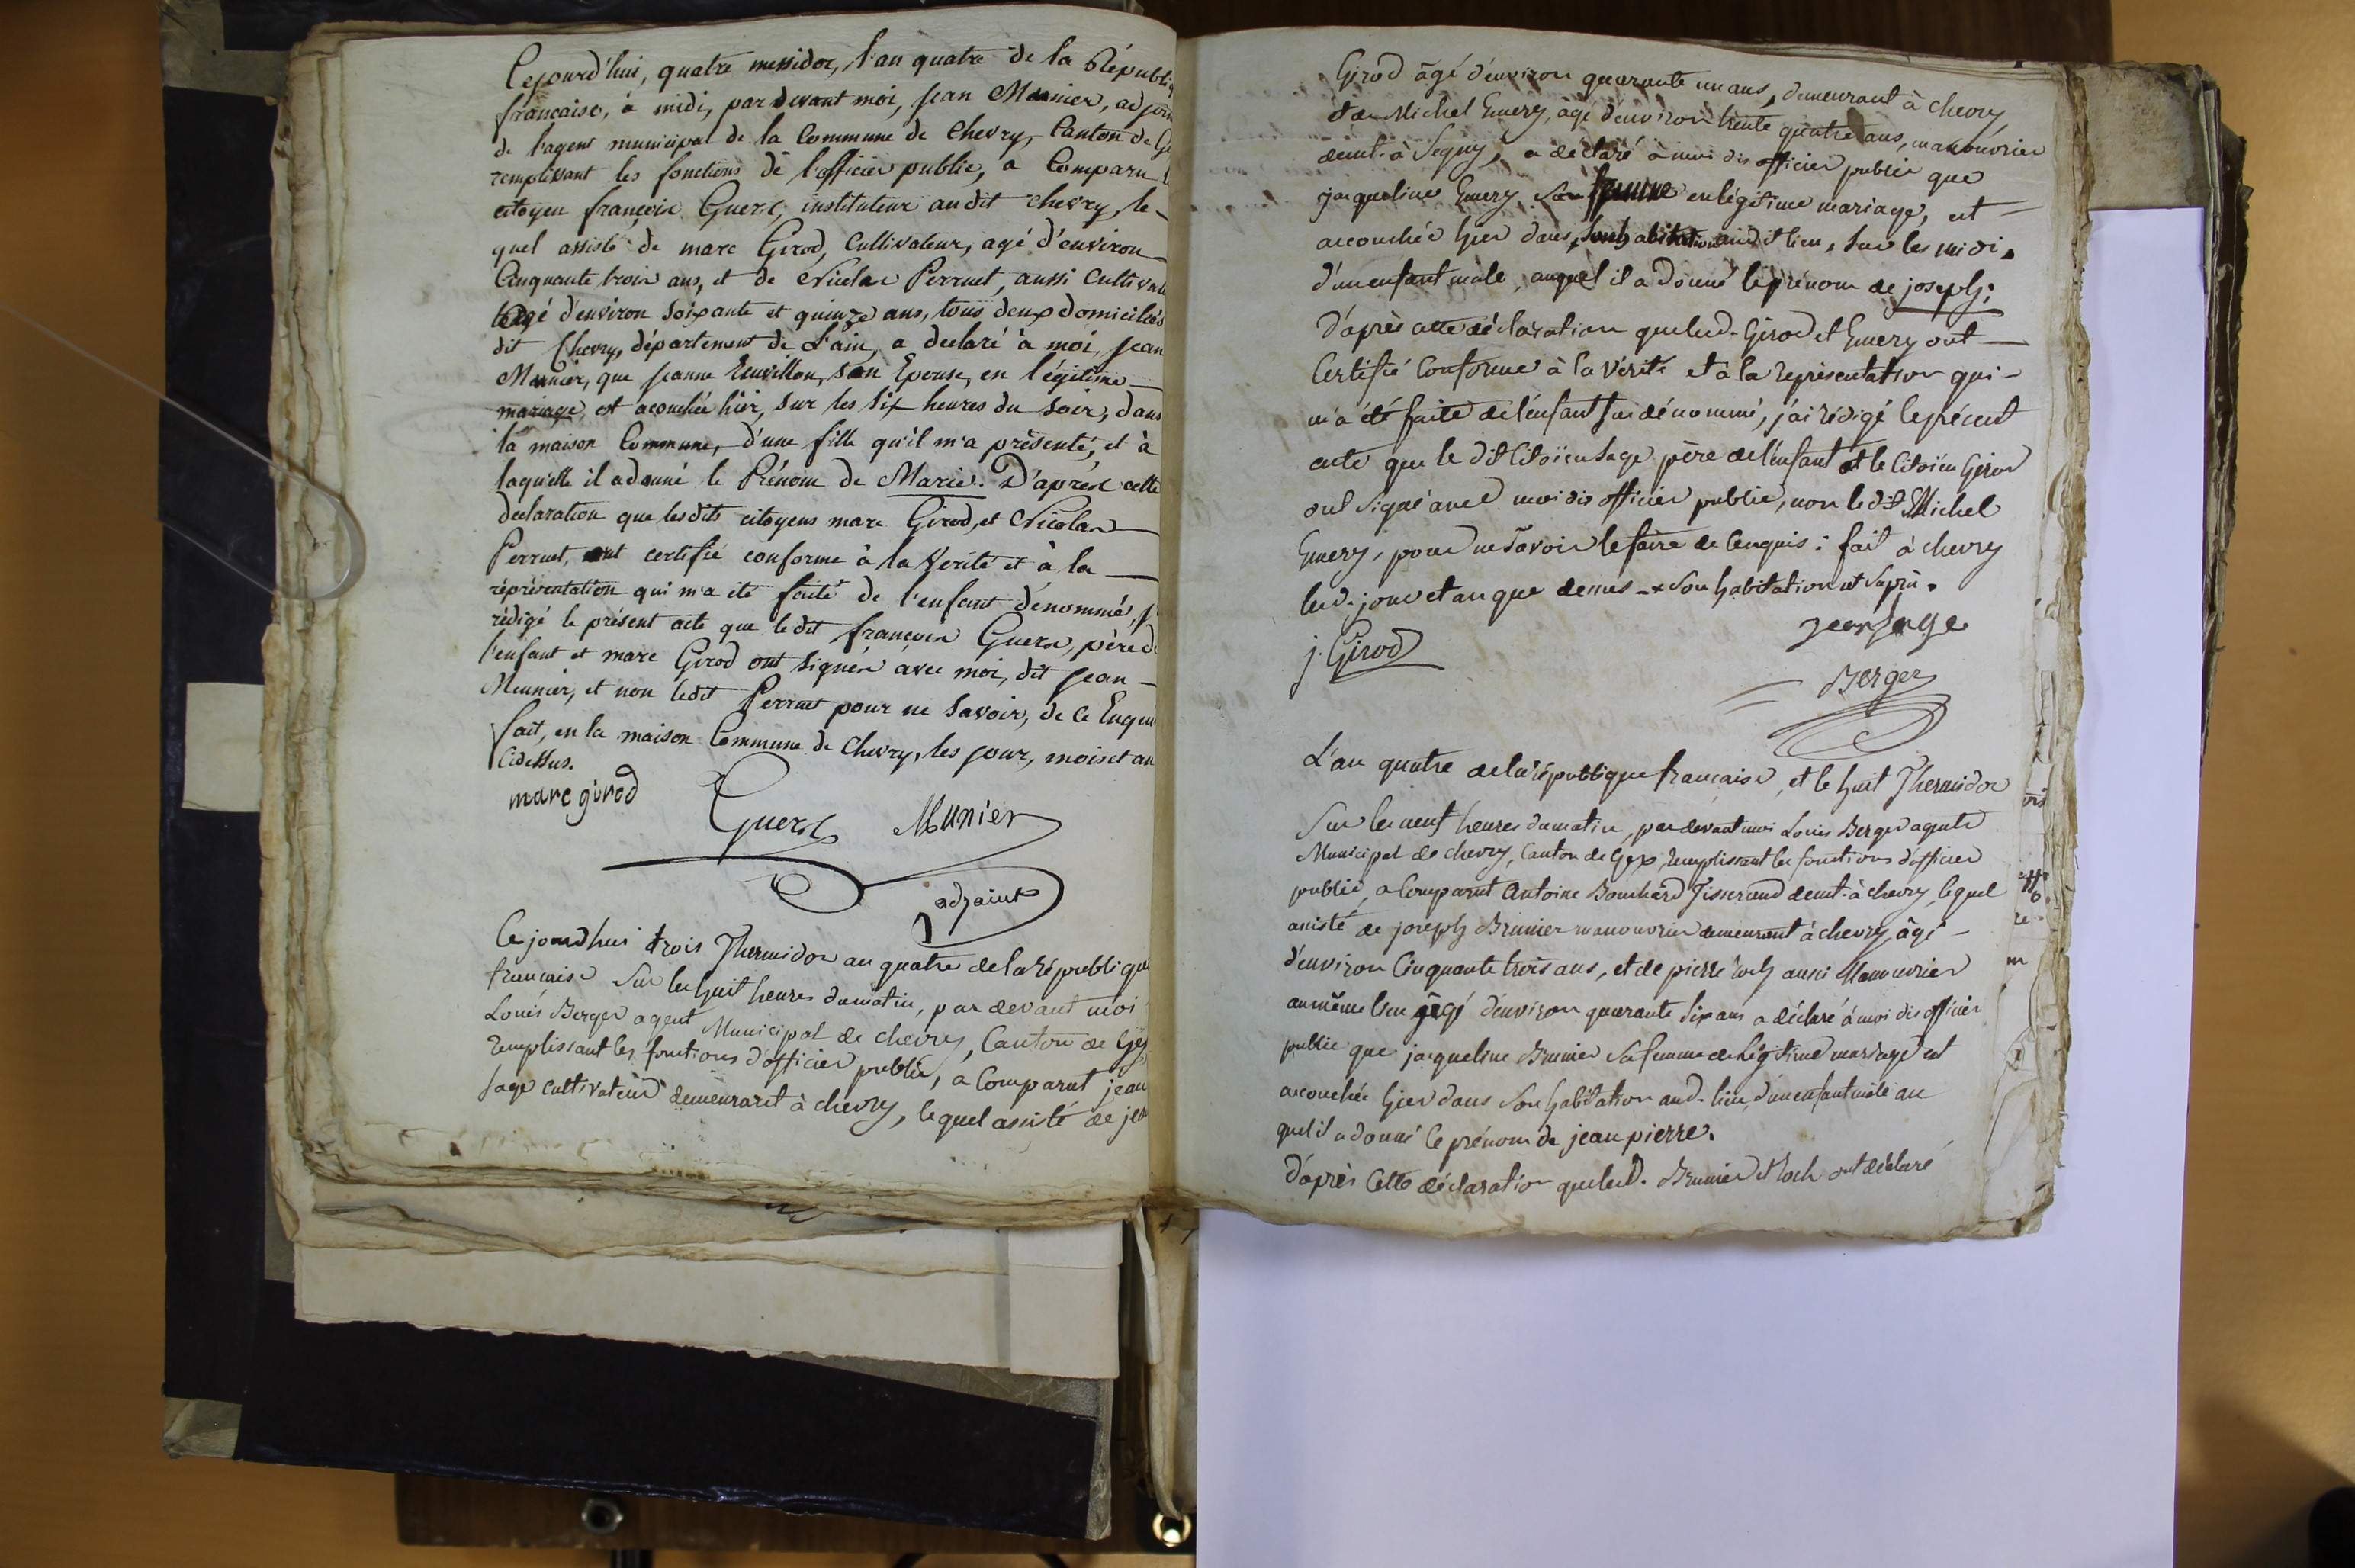 Cejourd'hui, quatre messidor, l'an quatre de la Républi
francaise, à midi, par devant moi, jean Munier, adjoin
de l'agent municipal de la Commune de Chevry, Canton de Ge
remplissant les fonctions de l'officier public, a Comparu l
citoyen françois Guers, instituteur audit chevry, le-
quel assisté de marc Girod, Cultivateur, agé d'environ
Cinquante trois ans, et de Nicolas Perruet, aussi Cultivate
agé d'environ soixante et quinze ans, tous deux domiciliés
dit Chevry, département de L'ain, a declaré à moi, jean
Munier, que jeanne, son Epouse, en légitime
mariage, est acouchée hier, sur les six heures du soir, dans
la maison Commune, d'une fille qu'il m'a présenté, et à
laquelle il a donné le Prénom de Marie. D'après cette
declaration que les dits citoyens marc Girod, et Nicolas
Perruet, ont certifié conforme à la Verité et à la
réprésentation qui m'a été faite de l'enfant dénommé, j
rédigé le présent acte que le dit françois Guers, père d
l'enfant et marc Girod ont signés avec moi, dit jean
Meunier, et non ledit Perruet pour ne savoir, de ce Enqui
fait, en la maison Commune de chevry, les jour, mois et an
Cidessus.
marc girod
Guers Munier
adjoint
Ce jourdhui trois Thermidor an quatre de la républiqu
francaise sur les huit heures du matin, par devant moi
Louis Berger agent Municipal de chevry, Canton de Gex
remplissant les fonctions d'officier public, a Comparut jean
sage cultivateur demeurant à chevry, lequel assisté de je
Girod âgé d'environ quarante un ans, demeurant à chevry
et de Michel Emery, âgé d'environ trente quatre ans, manouvrier
demt. à Segny, a declaré à moi dis officier public que
jaqueline Emery son femme en légitime mariage, est
accouchée hier dans, son habitation audit lieu, sur les midi,
d'un enfant male, auquel il a donné le prénom de joseph;
D'après cette déclaration que lesd. Girod et Emery ont
Certifié Conforme à la Vérité et à la représentation qui
m'a été faite de l'enfant sus dénommé, j'ai rédigé le présent
acte que le dit Citoïen Sage père de l'enfant et le Citoïen Girod
ont signé avec moi dis officier public, non le dt Michel
Emery, pour ne savoir le faire de ce enquis; fait à chevry
lesd. jour et an que dessus - x son habitation est
j. Girod
jean sage
Berger
L'an quatre de la république francaise, et le huit Thermidor
Sur les neuf heures du matin, par devant moi Louis Berger agent
Municipal de chevry, Canton de Gex, remplissant les fonctions d'officier
public, a Comparut Antoine Bouchard Tisserand demt. à chevry, lequel
assisté de joseph Brunier manouvrier demeurant à chevry, âgé
d'environ Cinquante trois ans, et de pierre roch aussi Manouvrier
au même lieu âgé d'environ quarante six ans a déclaré à moi dis officier
public que jaqueline Brunier sa femme de légitime mariage est
accouchée hier dans son habitation aud. lieu, d'un enfant mâle au
quel il a donné le prénom de jean pierre.
d'après Cette déclaration que lesd. Brunier et Roch ont déclaré